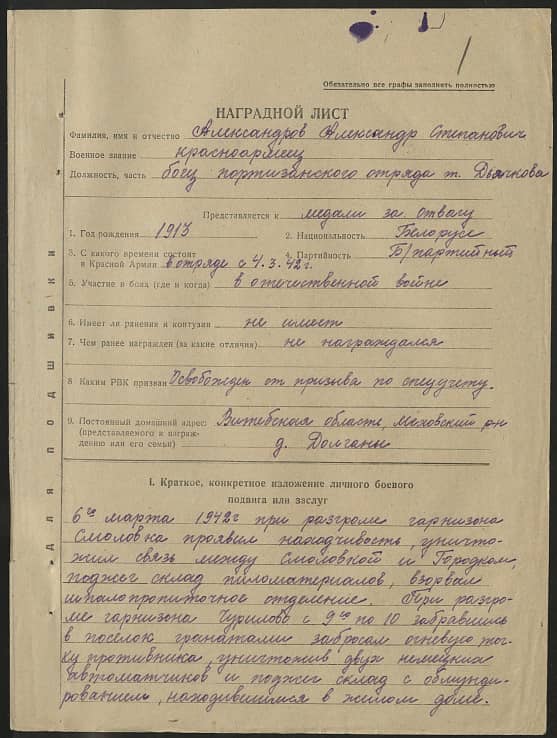 Обязательно все графы заполнить полностью
НАГРАДНОЙ ЛИСТ
Фамилия, имя и отчество Александров Александр Степанович
Военное звание красноармеец
Должность, часть боец партизанского отряда т. Дьячкова
Представляется к медали за отвагу
1. Год рождения 1913 2. Национальность Белорусс
3. С какого времени состоит в Красной Армии в отряде с 4.3.42г. 4. Партийность Б/партийный
5. Участие в боях (где и когда) в отечественной войне
6. Имеет ли ранения и контузии не имеет
7. Чем ранее награжден (за какие отличия) не награждался
8 Каким РВК призван Освобожден от призыва по спецучету.
9. Постоянный домашний адрес: Витебская область, Меховский р-н
(представляемого к награж-
дению или его семьи) д. Долганы
для подшивки
I. Краткое, конкретное изложение личного боевого
подвига или заслуг
6го марта 1942г при разгроме гарнизона
Смоловка проявил находчивость, уничто-
жил связь между Смоловкой и Городком,
поджег склад пиломатериалов, взорвал
шпалопропиточное отделение. При разгро-
ме гарнизона Чурилово с 9го по 10 забравшись
в поселок гранатами забросал огневую точ-
ку противника, уничтожив двух немецких
автоматчиков и поджег склад с обмунди-
рованием, находившимся в жилом доме.